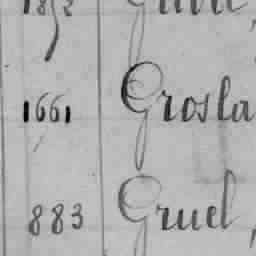 1661 Grosla
883 Gruel,